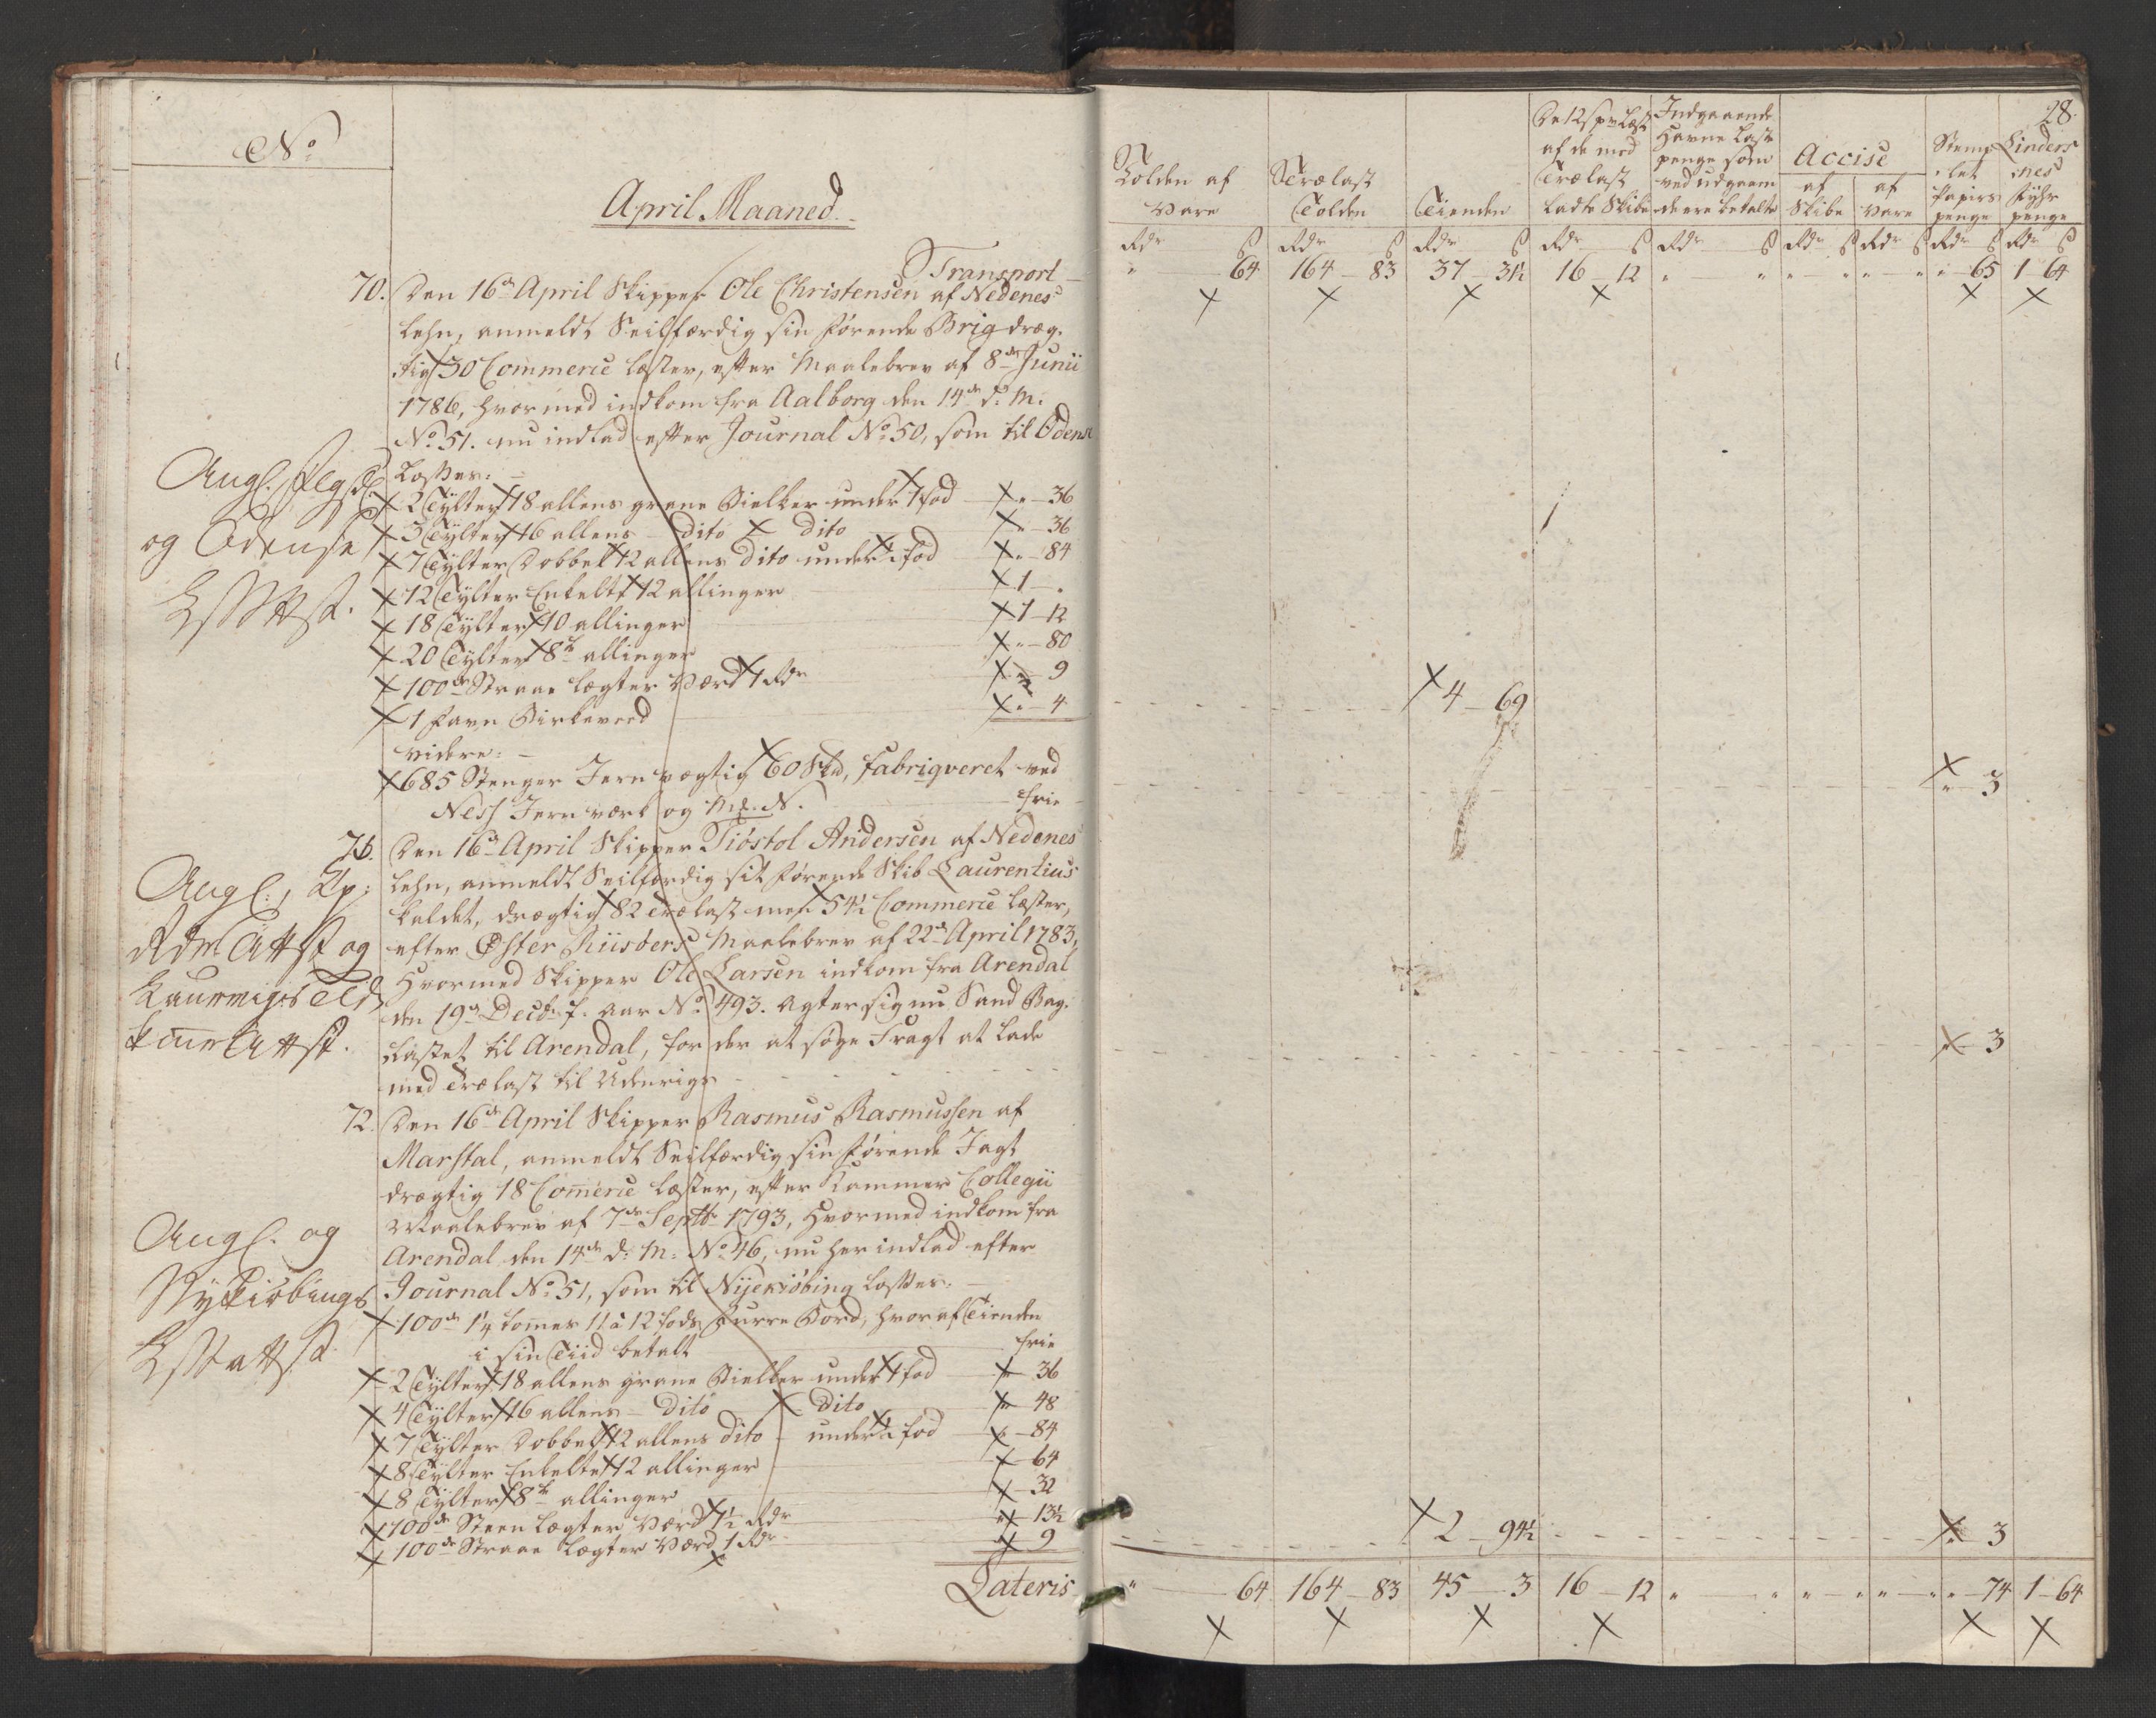 No
April Maaned
Transport
70. Den 16de April Skipper Ole Christensen af Nedenes
Lehn, anmeldt Seilfærdig sin førende Brig dræg-
tig 30 Commerce læster, efter Maalebrev af 8de Junii
1786, hvormed indkom fra Aalborg den 14de d: M:
No 51. nu indlad efter Journal No 50, som til Odense
losses:
2 Tylter 18 allens grane Bielker under 1 fod " 36
3 Tylter 16 allens dito dito " 36
7 Tylter Dobbelt 12 allens dito under 1 fod " 84
12 Tylter Enkelt 12 allinger 1 "
18 Tylter 10 allinger 1 12
20 Tylter 8te allinger " 80
100de Straae lægter værd 1 Rdr " 9
1 Favn Birkeveed " 4
videre:
685 Stenger Jern vægtig 60 Skd, fabriqveret ved
Ness Jernværk og Mk. N. frie
Angl.
og Odense
71. Den 16de April Skipper Tiøstol Andersen af Nedenes
Lehn, anmeldt Seilfærdig sit førende Skib Laurentius
kaldet, drægtig 82 Trælast men 54½ Commerce læster,
efter Øster Riisøers Maalebrev af 22de April 1783,
Hvormed Skipper Ole Larsen indkom fra Arendal
den 19de Decbr f. Aar No 493. agter sig nu Sand Bag-
lastet til Arendal, for der at søge Fragt at lade
med Trælast til Udenrigs
Angl.
og
72. Den 16de April Skipper Rasmus Rasmussen af
Marstal, anmeldt Seilfærdig sin førende Jagt
drægtig 18 Com̄erce læster, efter Kammer Collegii
Maalebrev af 7de Septbr 1793, Hvormed indkom fra
Arendal den 14de d: M: No 46, nu her indlad efter
Journal No 51, som til Nyekiøbing losses.
100de 1¼ tom̄er 11 à 12 fods Furre Bord, hvoraf Tienden
i sin Tiid betalt frie
2 Tylter 18 allens grane Bielker under 1 fod 36
4 Tylter 16 allens dito dito 48
7 Tylter Dobbelt 12 allens dito under 1 fod 84
8 Tylter Enkelte 12 allinger 64
8 Tylter 8te allinger 32
100de Steen lægter værd 1½ Rdr 13½
100de Straae lægter værd 1 Rdr 9
Angl. og
Nykiøbings
Lateris
28.
Tolden af Vare
Trælast Tolden
Tienden
De 12 s pr Læst af de med Trælast ladte Skibe
Indgaaende Havne Laste penge som ved udgaaende ere betalte
Accise
af Skibe
af Vare
Stemplet Papirs penge
Linders nes Fyhr penge
Rdr s Rdr s Rdr s Rdr s Rdr s Rdr s Rdr s Rdr s Rdr s
" 64 164 83 37 31½ 16 12 " " " " " " " 65 1 64
4 69
" 3
" 3
2 94½ " 3
" 64 164 83 45 3 16 12 " " " " " " " 74 1 64